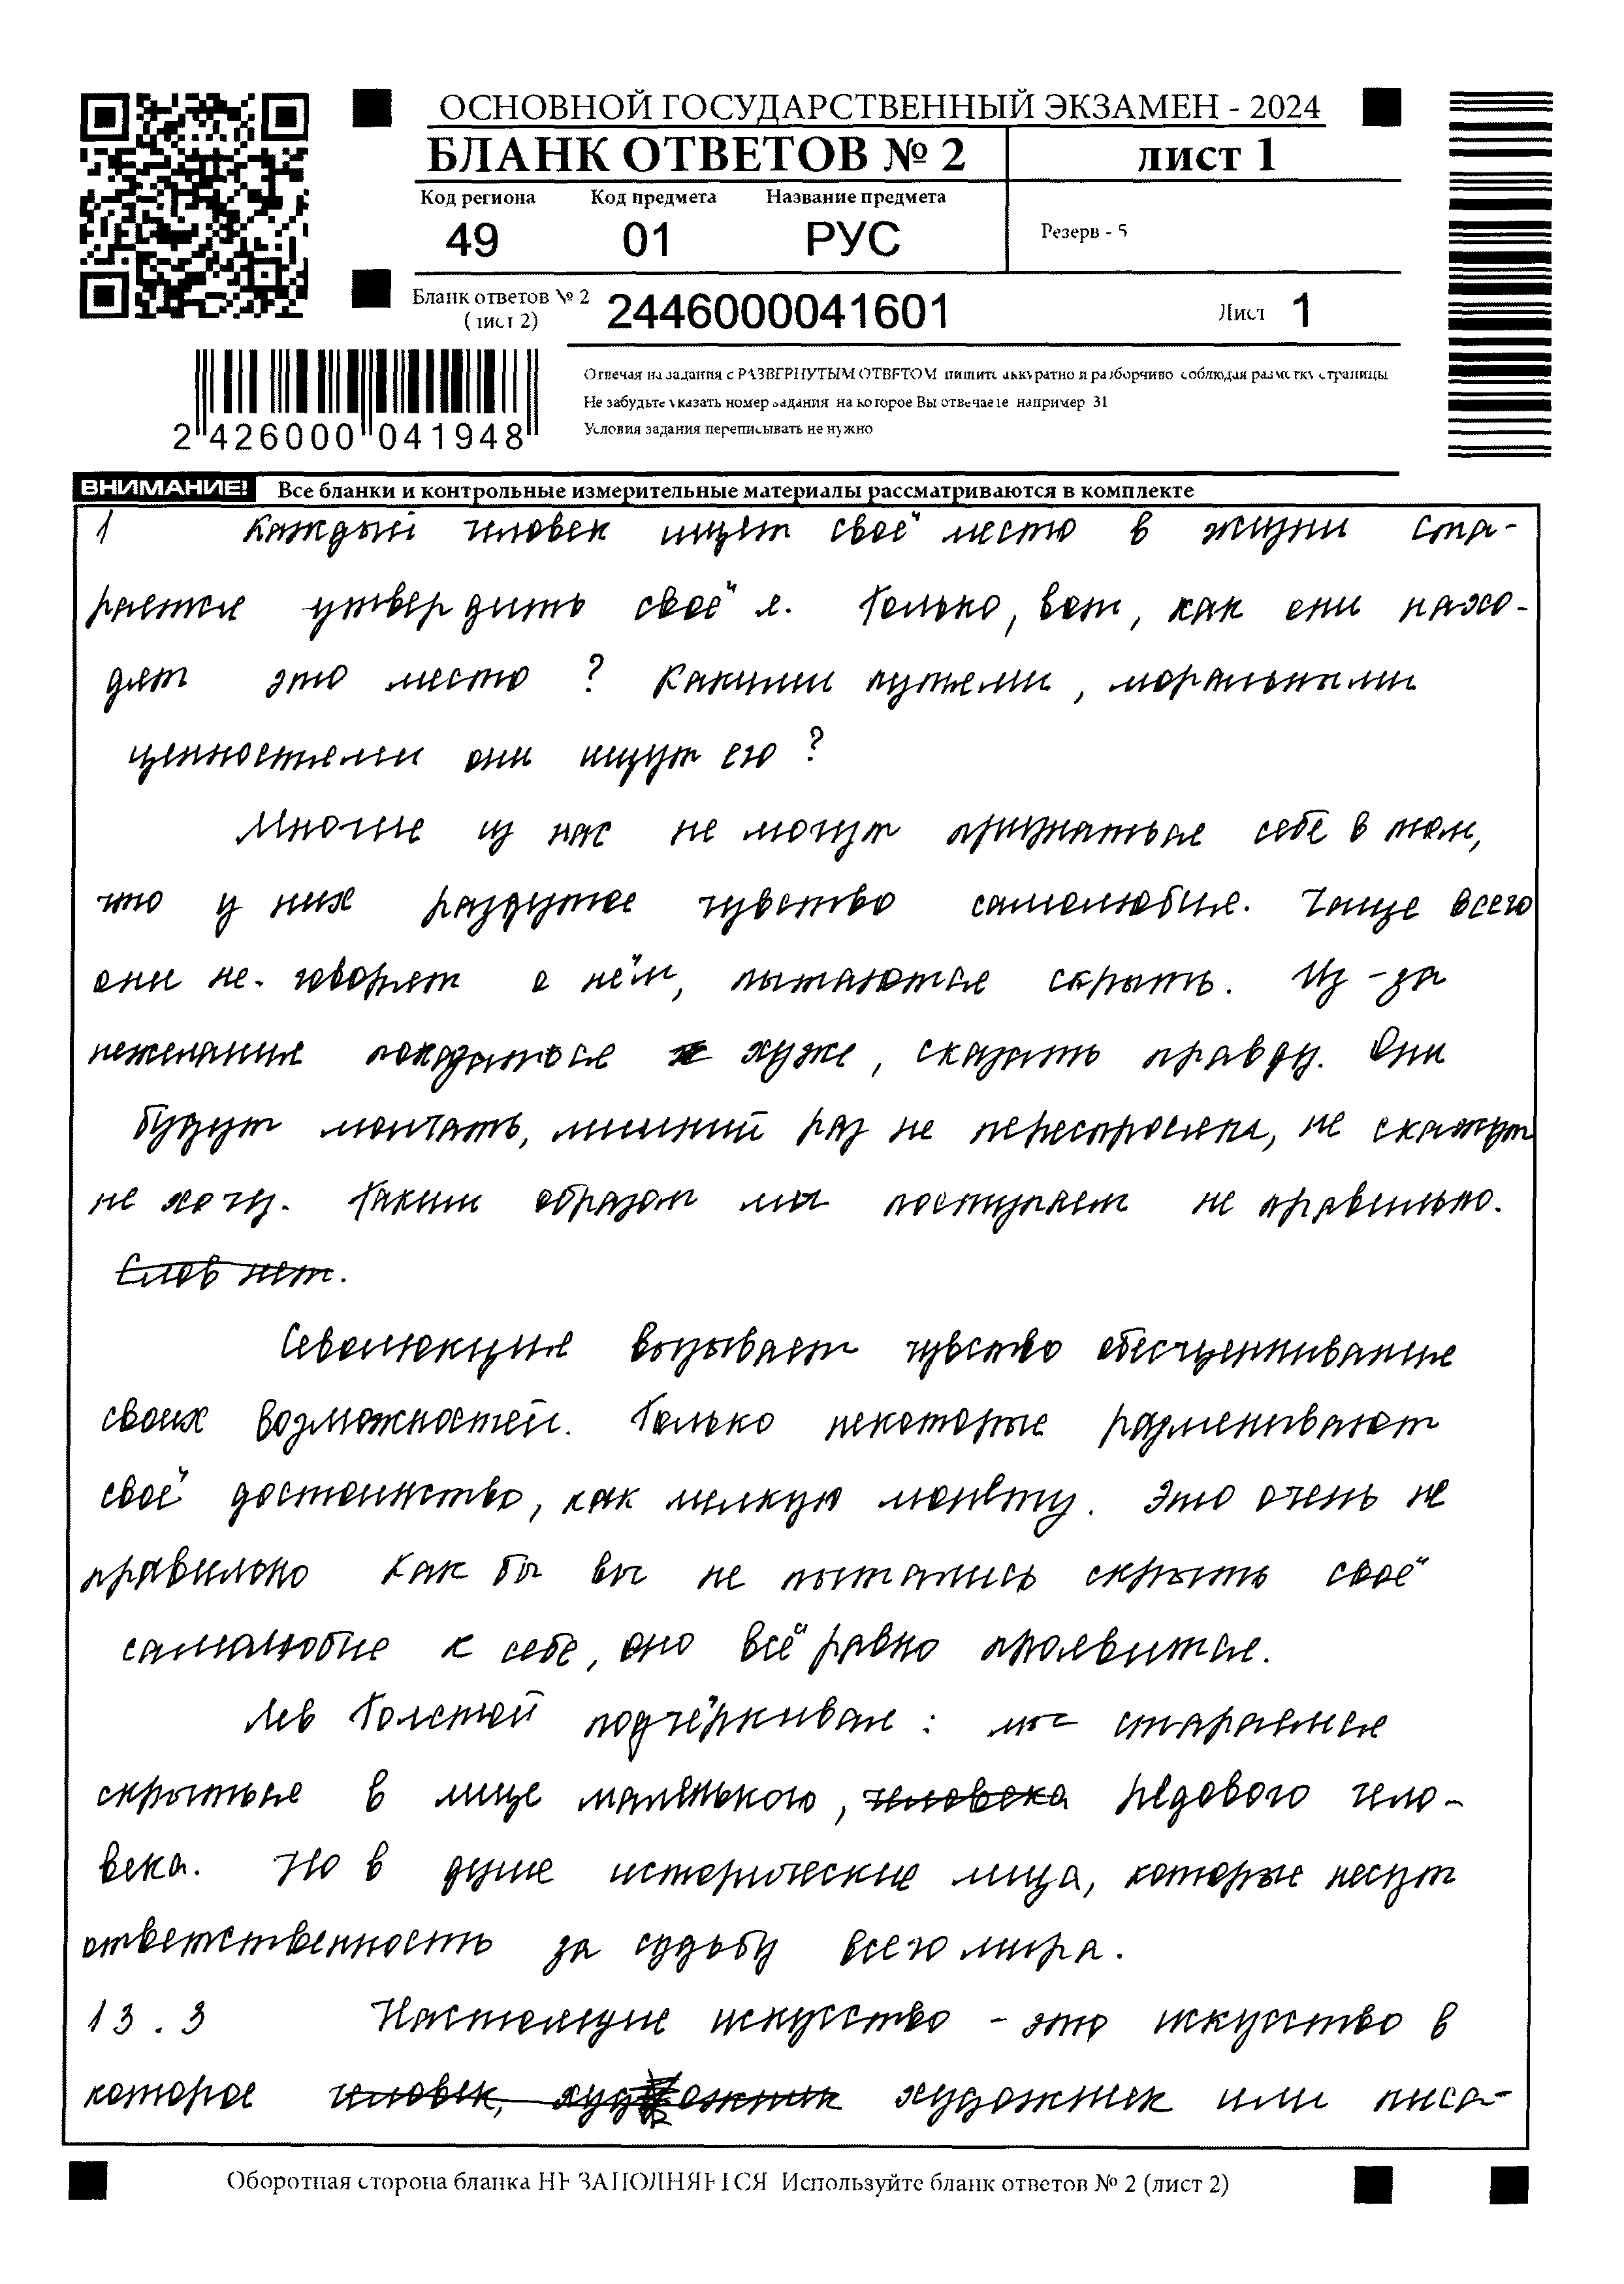 ОСНОВНОЙ ГОСУДАРСТВЕННЫЙ ЭКЗАМЕН - 2024
БЛАНК ОТВЕТОВ № 2
ЛИСТ 1
Код региона Код предмета Название предмета
49 01 РУС
Резерв - 5
Бланк ответов № 2
(лист 2)
2446000041601
Лист 1
Отвечая на задания с РАЗВЕРНУТЫМ ОТВЕТОМ пишите аккуратно и разборчиво соблюдая разметку страницы
Не забудьте указать номер задания на которое Вы отвечаете например 31
Условия задания переписывать не нужно
2 426000 041948
ВНИМАНИЕ! Все бланки и контрольные измерительные материалы рассматриваются в комплекте
1 Каждый человек ищет своё место в жизни ста-
рается утвердить своё я. Только, вот, как они нахо-
дят это место ? Какими путями, моральными
ценностями они ищут его ?
Многие из нас не могут признаться себе в том,
что у них раздутое чувство самолюбия. Чаще всего
они не говорят о нём, пытаются скрыть. Из-за
нежелания показаться хуже, сказать правду. Они
будут молчать, лишний раз не переспросят, не скажут
не хочу. Таким образом мы поступаем не правильно.
Слов нет.
вызывает чувство обесценивание
своих возможностей. Только некоторые разменивают
своё достоинство, как мелкую монету. Это очень не
правильно Как бы вы не пытались скрыть своё
самолюбие к себе, оно всё равно проявится.
Лев Толстой подчёркивал : мы стараемся
скрыться в лице маленького, человека рядового чело-
века. Но в душе исторические лица, которые несут
ответственность за судьбу всего мира.
13.3 Настоящие искусство - это искусство в
которое человек, художник художник или писа-
Оборотная сторона бланка НЕ ЗАПОЛНЯЕТСЯ Используйте бланк ответов № 2 (лист 2)